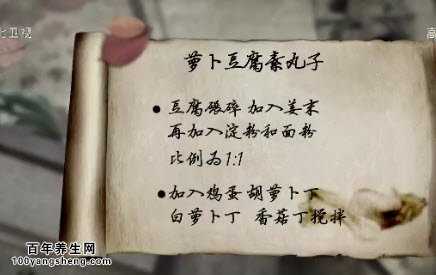 七卫视
高
萝卜豆腐素丸子
● 豆腐碾碎 加入姜末
再加入淀粉和面粉
比例为1:1
● 加入鸡蛋 胡萝卜丁
白萝卜丁 香菇丁搅拌
百年养生网
100yangsheng.com